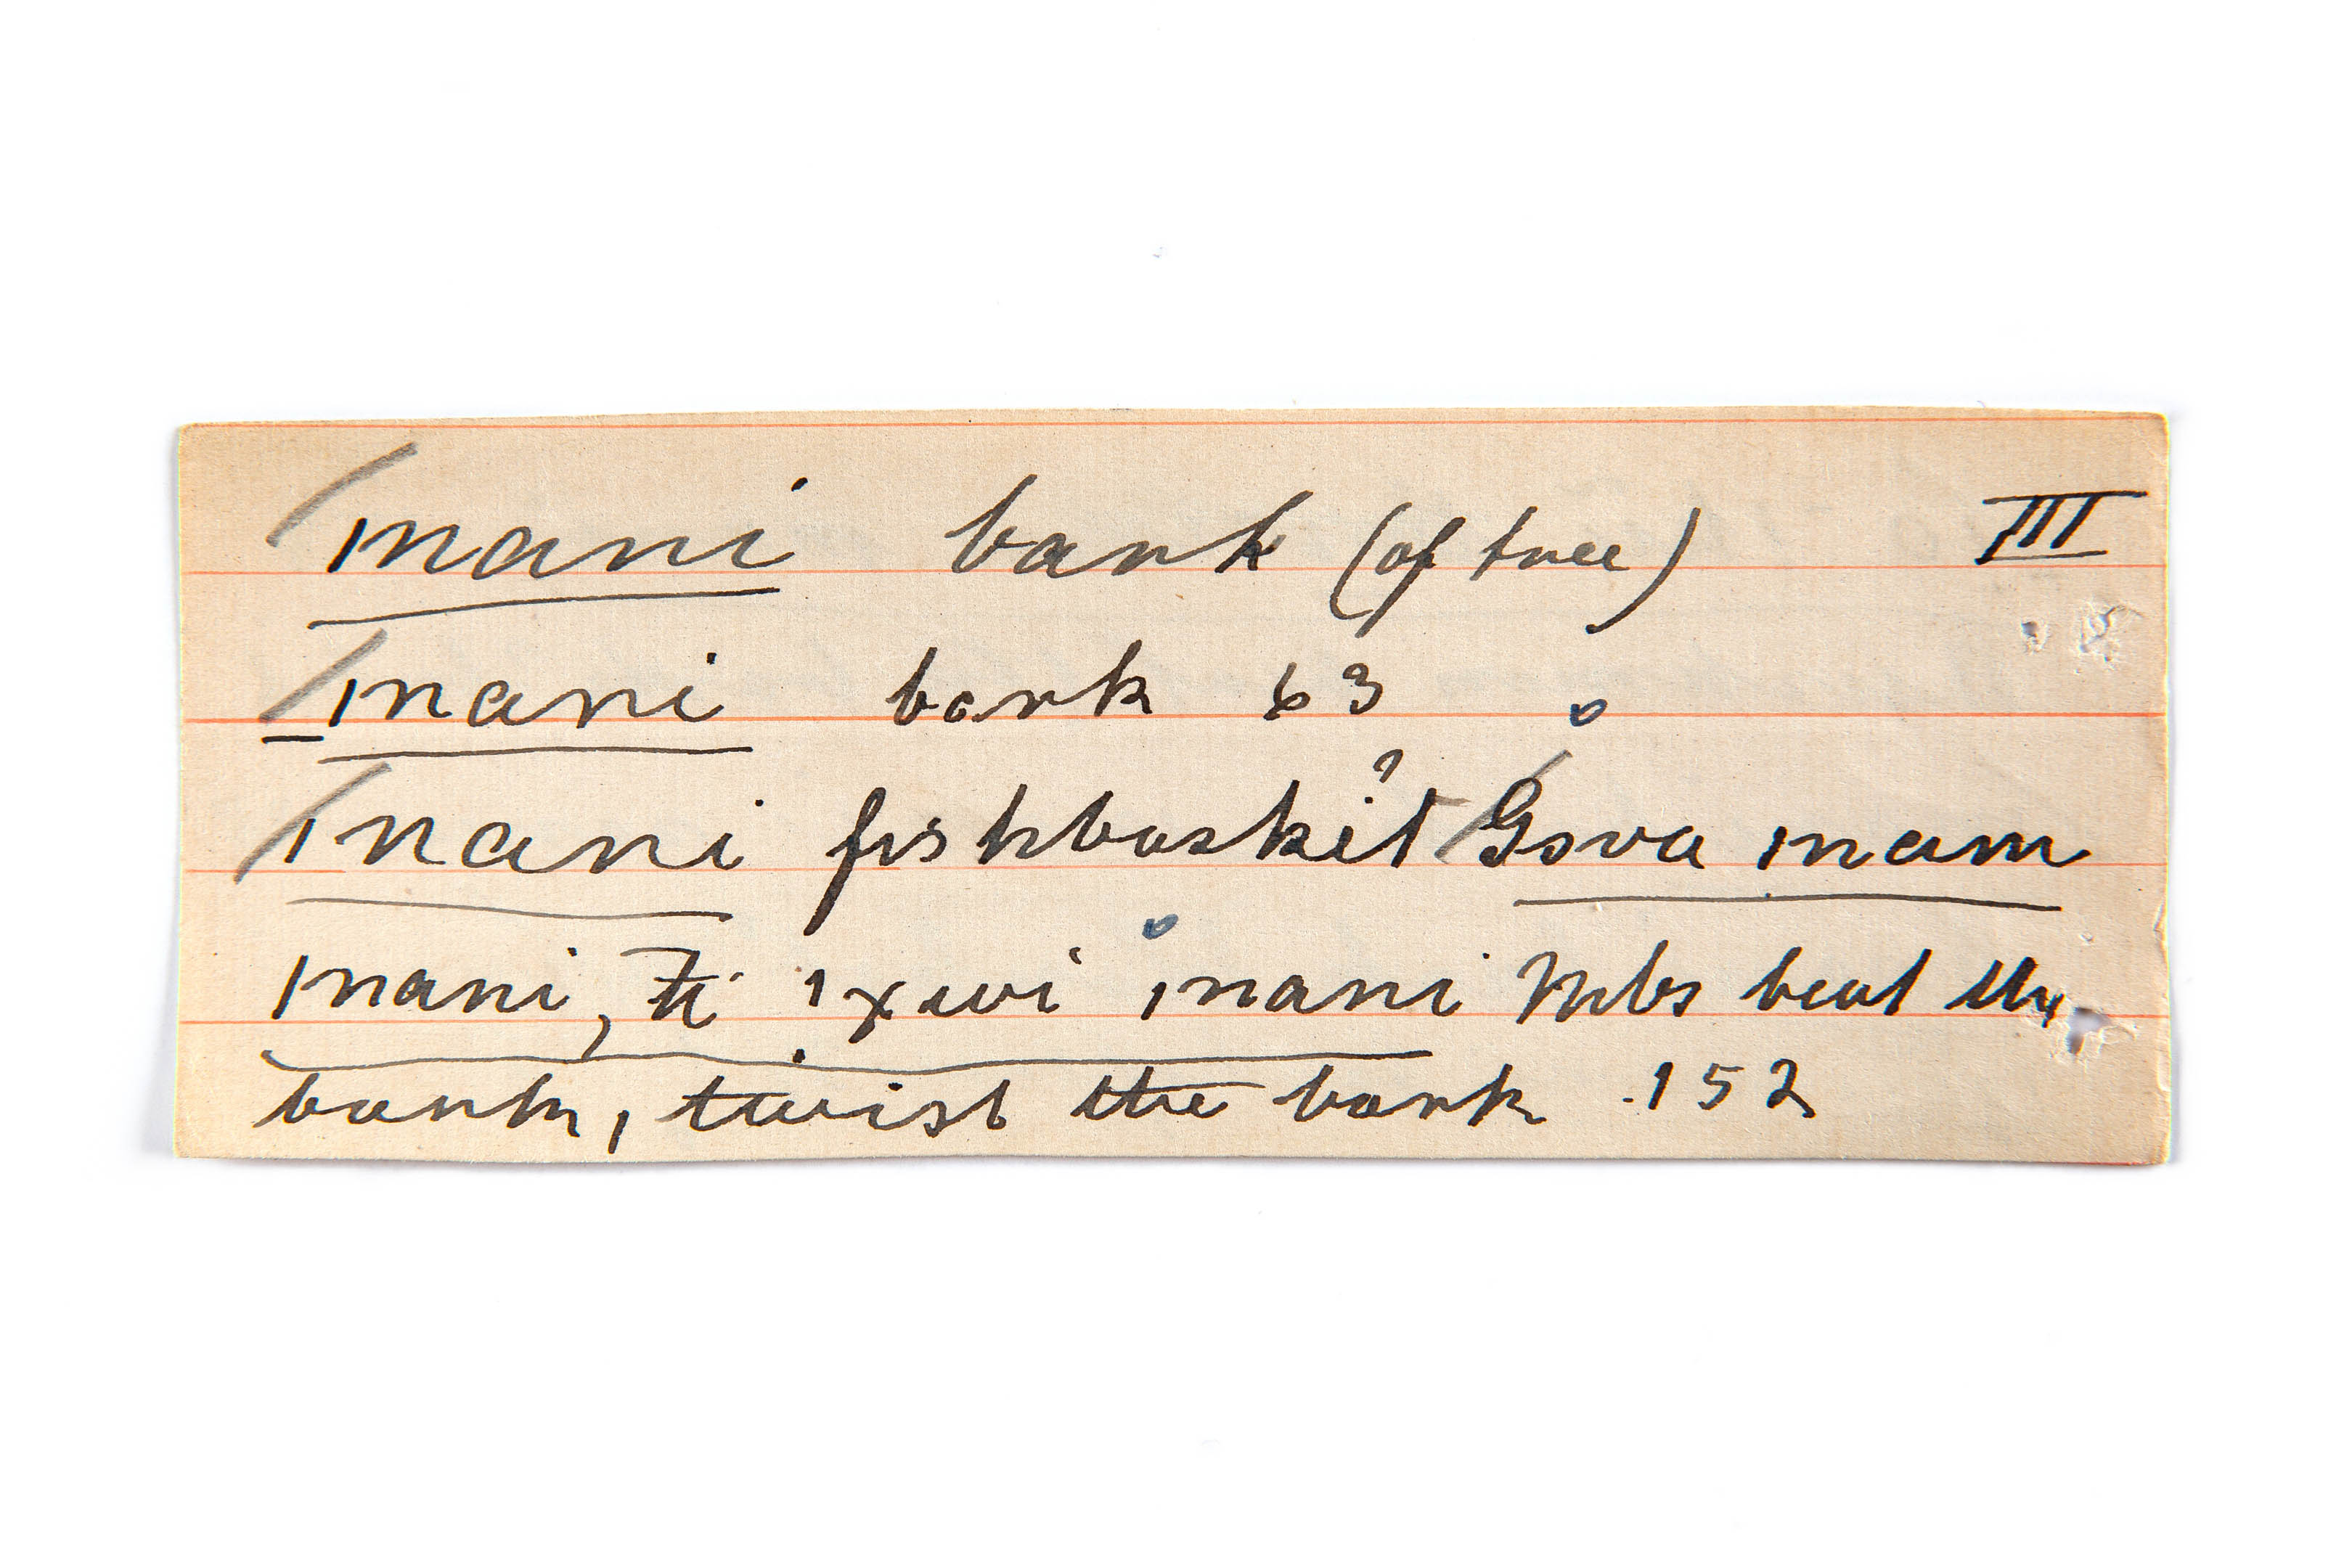 ınani bark (of tree) III
ınani bark 63
ınani fishbasket Gova ınam
ınani, ti ıxwi ınani Mbs beat the
bark, twist the bark 152